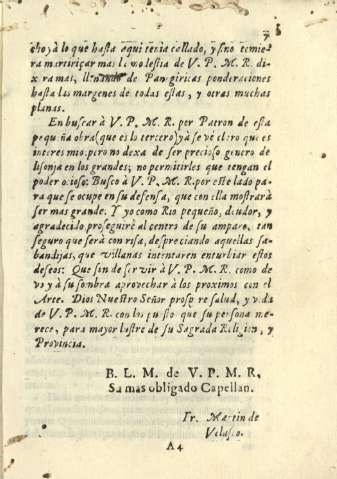 cho yà lo que hasta aqui tenia callado, y si no temie-
ra martiriçar mas la molestia de V. P. M. R. di-
xera mas, llenando de Panegiricas ponderaciones
hasta las margenes de todas estas, y otras muchas
planas.
En buscar à V. P. M. R. por Patron de esta
pequeña obra (que es lo tercero) yà se ve claro que es
interes mio. pero no dexa de ser precioso genero de
lisonja en los grandes; no permitirles que tengan el
poder ocioso. Busco à V. P. M. R. por este lado pa-
ra que se ocupe en su defensa, que con ella mostrarà
ser mas grande. Y yo como Rio pequeño, deudor, y
agradecido, proseguirè al centro de su amparo, tan
seguro que serà con risa, despreciando aquellas sa-
bandijas, que villanas intentaren enturbiar estos
deseos: Que sin de servir à V. P. M. R. como de
vo y à su sombra aprovechar à los proximos con el
Arte. Dios Nuestro Señor prospere salud, y vida
de V. P. M. R. con los puestos que su persona me-
rece, para mayor lustre de su Sagrada Religion, y
Provincia.
B. L. M. de V. P. M. R,
Su mas obligado Capellan.
Fr. Martin de
Velasco.
A4